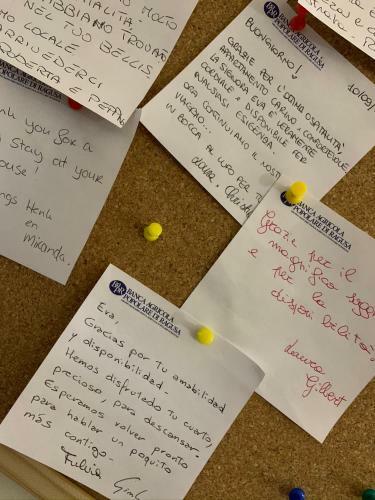 MOLTO
OSPITALITA'
ABBIAMO TROVATO
NEL TUO BELLIS.
LOCALE
ARRIVEDERCI
ROBERTA E PEPPE
BANCA AGRICOLA
POPOLARE DI RAGUSA
you for a
stay at your
house!
Henk
en
Miranda.
BANCA AGRICOLA
POPOLARE DI RAGUSA
BUONGIORNO!
GRAZIE PER L'OTTIMA OSPITALITA',
APPARTAMENTO CARINO, CONFORTEVOLE
LA SIGNORA EVA È VERAMENTE
CORDIALE E DISPONIBILE PER
QUALSIASI ESIGENZA.
ORA CONTINUIAMO IL NOSTRO
VIAGGIO.
IN BOCCA AL LUPO PER
BANCA AGRICOLA
POPOLARE DI RAGUSA
Grazie per il
magnifico
e per la
disponibilità
Laura
Gilbert
BAPR BANCA AGRICOLA
POPOLARE DI RAGUSA
Eva,
Gracias por tu amabilidad
y disponibilidad.
Hemos disfrutado tu cuarto,
precioso, para descansar.
Esperamos volver pronto
para hablar un poquito
más contigo.
Fulvia